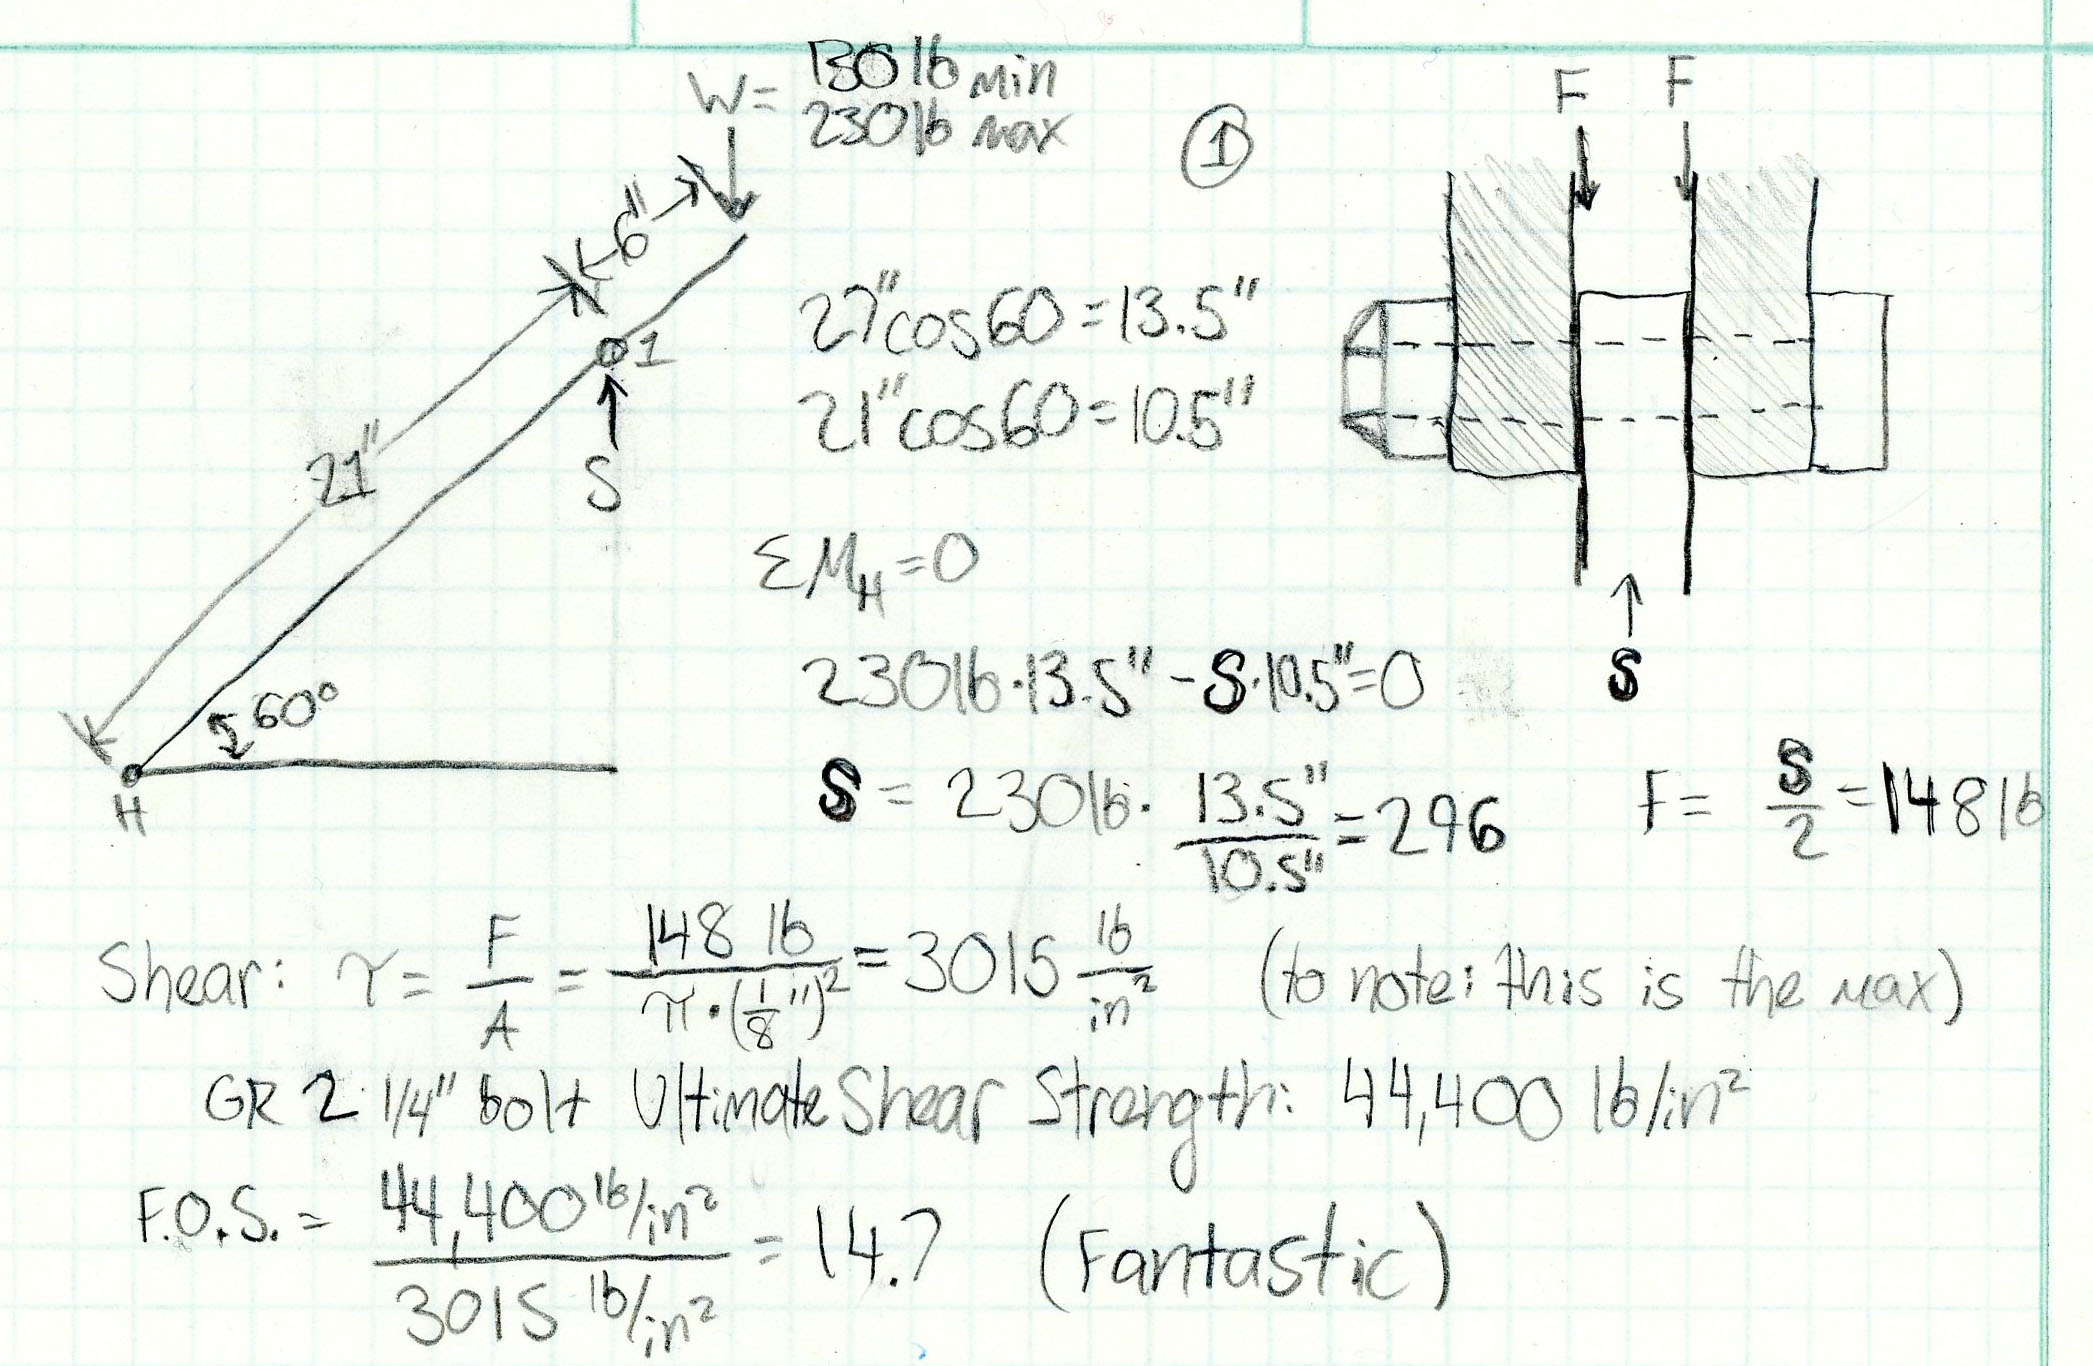 W = 130 lb min
230 lb max
①
F F
6"
27"cos60=13.5"
1
21"cos60=10.5"
21"
S
ΣM_H=0
230lb·13.5" - S·10.5"=0
S
60°
H
S = 230lb · 13.5"/10.5" = 296
F = S/2 = 148 lb
Shear: τ = F/A = 148 lb/π·(1/8")² = 3015 lb/in² (to note: this is the max)
GR 2 1/4" bolt Ultimate Shear Strength: 44,400 lb/in²
F.O.S. = 44,400 lb/in²/3015 lb/in² = 14.7 (Fantastic)